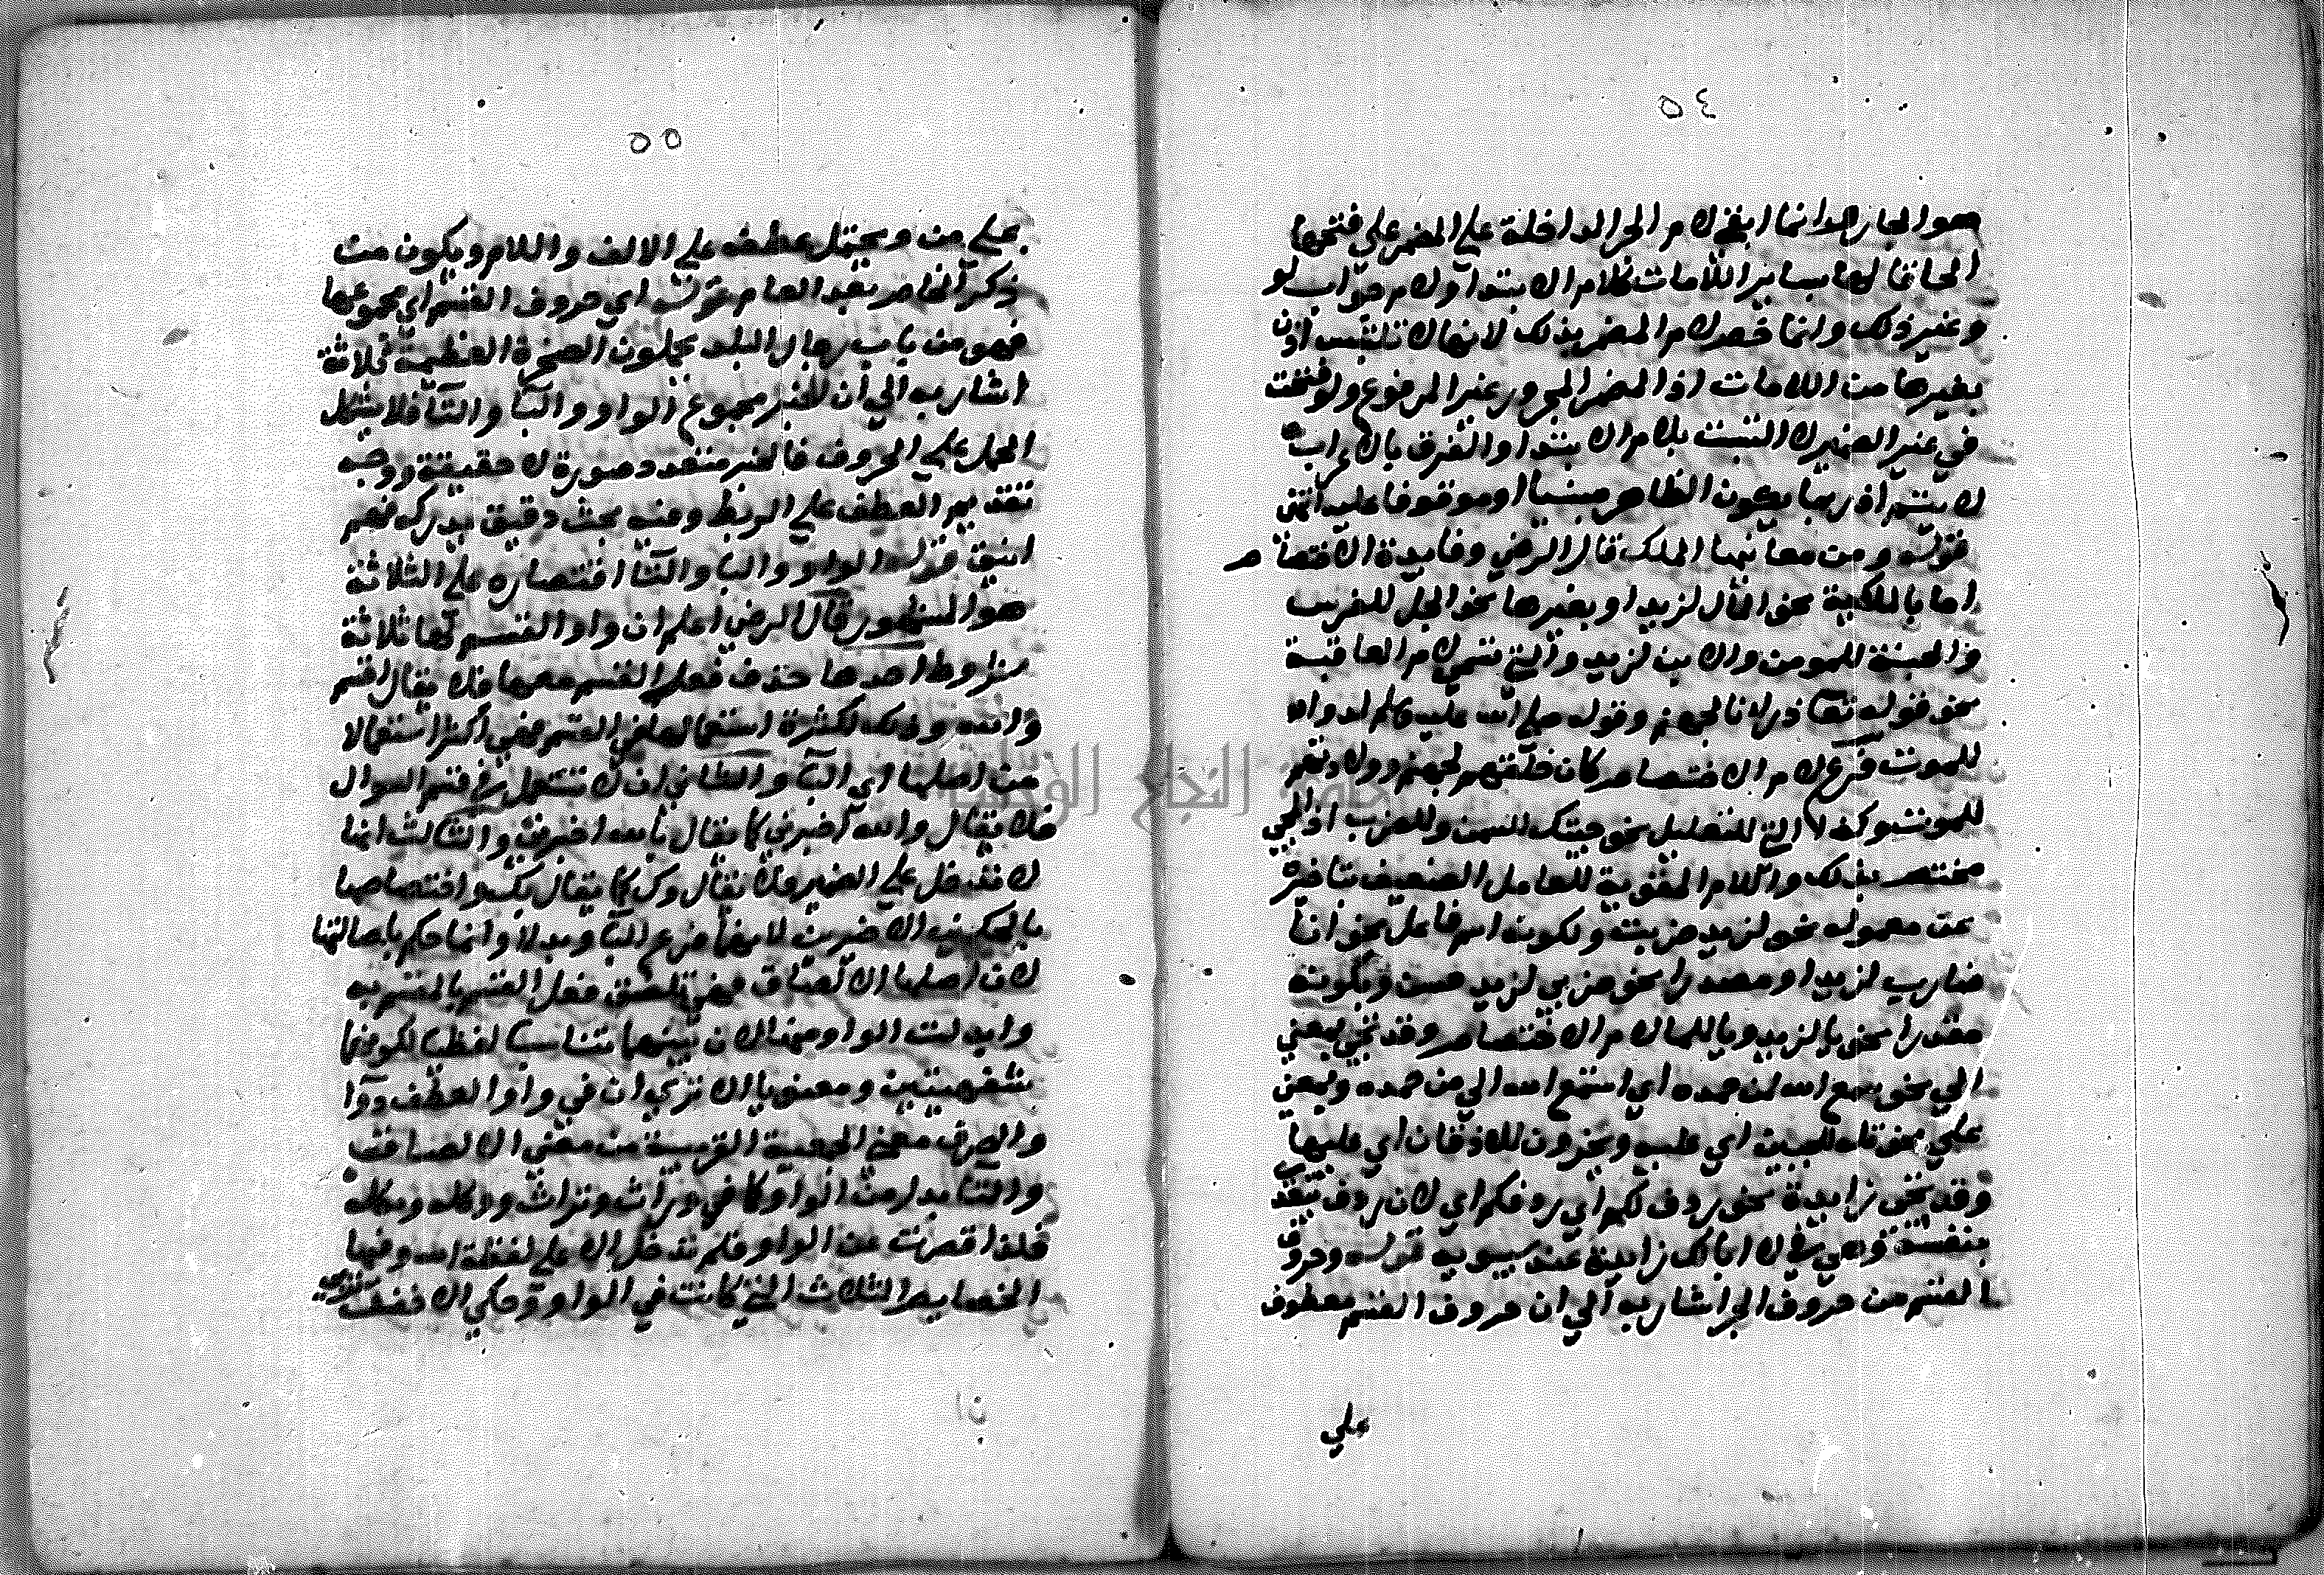 ٥٤
هو الجار وانما ابقى لام الجر الداخلة على المضمر على فتحها
الحاقا لها بساير اللامات كلام الابتدا ولام جواب لو
وغير ذلك وانما خص لام المضمر بذلك لانها لا تلتبس اذن
بغيرها من اللامات اذ المضمر المجرور غير المرفوع ولو فتحت
في غير الضمير لالتبست بلام الابتدا والفرق بالاعراب
لا يتم اذ ربما يكون الظاهر مبنيا او موقوفا عليه انتهى
قوله ومن معانيها الملك قال الرضي وفايدة الاختصاص
اما بالملكية نحو المال لزيد او بغيرها نحو الجل للفرس
والجنة للمومن والابن لزيد والتي تسمى لام العاقبة
نحو قوله تعا ذرانا لجهنم وقوله صلى الله عليه وسلم لدوا
للموت فرع لام الاختصاص كان خلقهم لجهنم وولادتهم
للموت وكذا التي للتعليل نحو جئتك للسمن وللضرب اذ المجي
مختص بذلك واللام المقوية للعامل الضعيف بتاخيره
عن معموله نحو لزيد ضربت وبكونه اسم فاعل نحو انا
ضارب لزيد او مصدرا نحو ضربي لزيد حسن وبكونه
مقدرا نحو يا لزيد ويا للما لام الاختصاص وقد تجي بمعنى
الى نحو سمع الله لمن حمده اي استمع الله الى من حمده وبمعنى
على نحو تله للجبين اي عليه ويخرون للاذقان اي عليها
وقد تجي زايدة نحو ردف لكم اي ردفكم اي لان ردف يتعدى
بنفسه وهي في لا ابا لك زايدة عند سيبويه قوله وحروف
القسم من حروف الجر اشار به الى ان حروف القسم معطوف
على
٥٥
على من ويحتمل عطفه على الالف واللام ويكون من
ذكر الخاص بعد العام قوله اي حروف القسم اي مجموعها
فهو من باب رجال البلد يحملون الصخرة العظيمة ثلاثة
اشار به الى ان الخبر مجموع الواو والبا والتا فلا يشكل
الحمل على الحروف فالخبر متعدد صورة لا حقيقة ووجه
تقديم العطف على الربط وفيه بحث دقيق يدركه فهم
انيق قوله الواو والبا والتا اقتصاره على الثلاثة
هو المشهور قال الرضي اعلم ان واو القسم لها ثلاثة
شروط احدها حذف فعل القسم معها فلا يقال اقسم
والله وذلك لكثرة استعمالها في القسم فهي اكثر استعمالا
من اصلها اي البا والثاني ان لا تستعمل في قسم السوال
فلا يقال والله اخبرني كما يقال بالله اخبرني والثالث انها
لا تدخل على الضمير فلا يقال وك كما يقال بك واختصاصها
بالحكمين الاخيرين لانها فرع البا وبدلا وانما حكم باصالتها
لان اصلها الالصاق فهي تلصق فعل القسم بالمقسم به
وابدلت الواو منها لان بينهما تناسبا لفظيا لكونهما
شفهيتين ومعنويا الا ترى ان في واو العطف وواو
والصرف معنى الجمعية القريبة من معنى الالصاق
والتا بدل من الواو كما في وراث وتراث ووكله وتكله
فلذا قصرت عن الواو فلم تدخل الا على لفظة الله وفيها
الخصايص الثلاث التي كانت في الواو وحكى الاخفش تربي